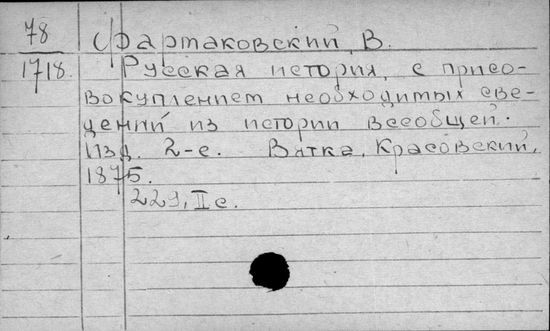 78
1718.
Фартаковский, В.
Русская история, с присо-
вокуплением необходимых све-
дений из истории всеобщей.
Изд. 2-е. Вятка, Красовский,
1875.
221, II с.